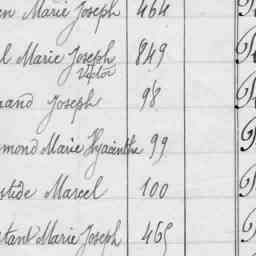 en Marie Joseph 464
l Marie Joseph 849
Victor
and Joseph 98
mond Marie Hyacinthe 99
stide Marcel 100
stant Marie Joseph 465